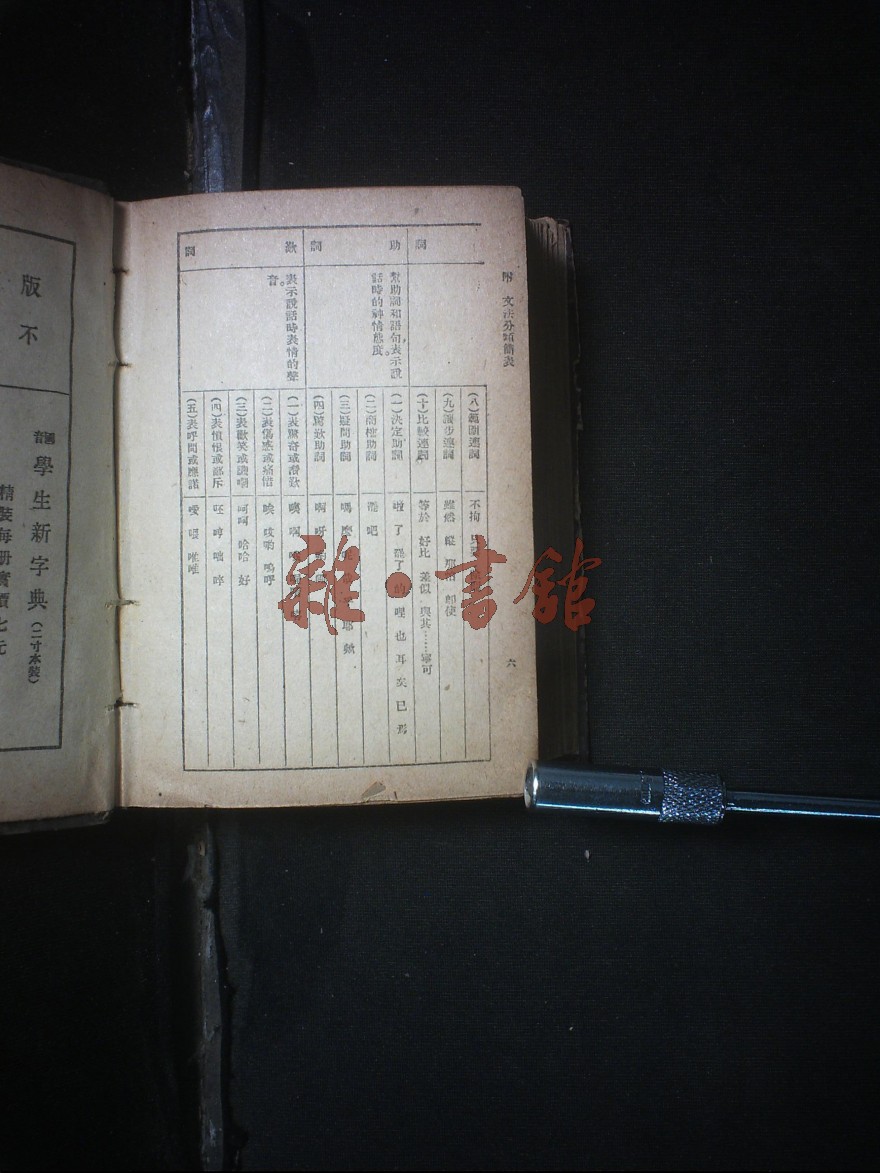 附 文法分類簡表
六
詞
助
詞
歎
詞
幫助詞和語句,表示說
話時的神情態度。
表示說話時表情的聲
音。
(八)範圍連詞 不拘
(九)讓步連詞 雖然 縱 即使
(十)比較連詞 等於 好比 差似 與其……寧可
(一)決定助詞 啦 了 罷了 的 哩 也 耳 矣 已 焉
(二)商榷助詞 罷 吧
(三)疑問助詞 嗎 麼 耶 歟
(四)驚歎助詞 啊 呀
(一)表驚奇或讚歎 噢 啊
(二)表傷感或痛惜 唉 哎喲 嗚呼
(三)表歡笑或譏嘲 呵呵 哈哈 好
(四)表憤恨或鄙斥 呸 哼 咄 哼
(五)表呼問或應諾 噯 喂 唯唯
版不
國音
學生新字典(二寸本裝)
精裝每册實價七元
雜·書館